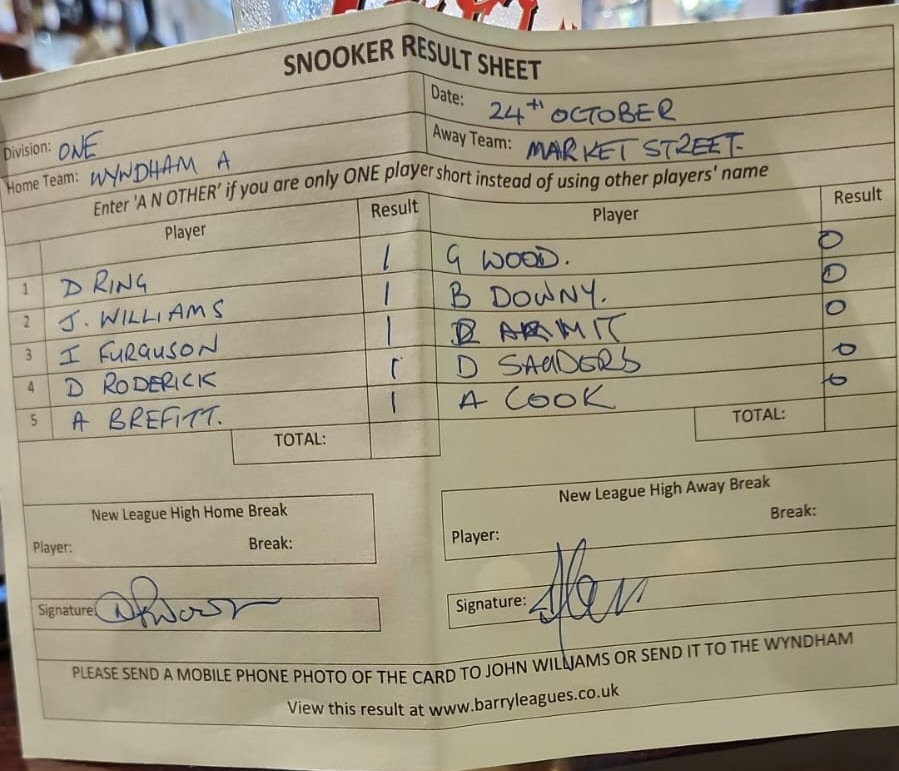 SNOOKER RESULT SHEET
Division: ONE
Date: 24TH OCTOBER
Home Team: WYNDHAM A
Away Team: MARKET STREET.
Enter 'A N OTHER' if you are only ONE player short instead of using other players' name
Player Result Player Result
1 D RING 1 G WOOD. 0
2 J. WILLIAMS 1 B DOWNY. 0
3 I FURGUSON 1 0
4 D RODERICK 1 D SAUDERS 0
5 A BREFITT. 1 A COOK 0
TOTAL: TOTAL:
New League High Home Break
Player: Break:
New League High Away Break
Player: Break:
Signature:
Signature:
PLEASE SEND A MOBILE PHONE PHOTO OF THE CARD TO JOHN WILLIAMS OR SEND IT TO THE WYNDHAM
View this result at www.barryleagues.co.uk